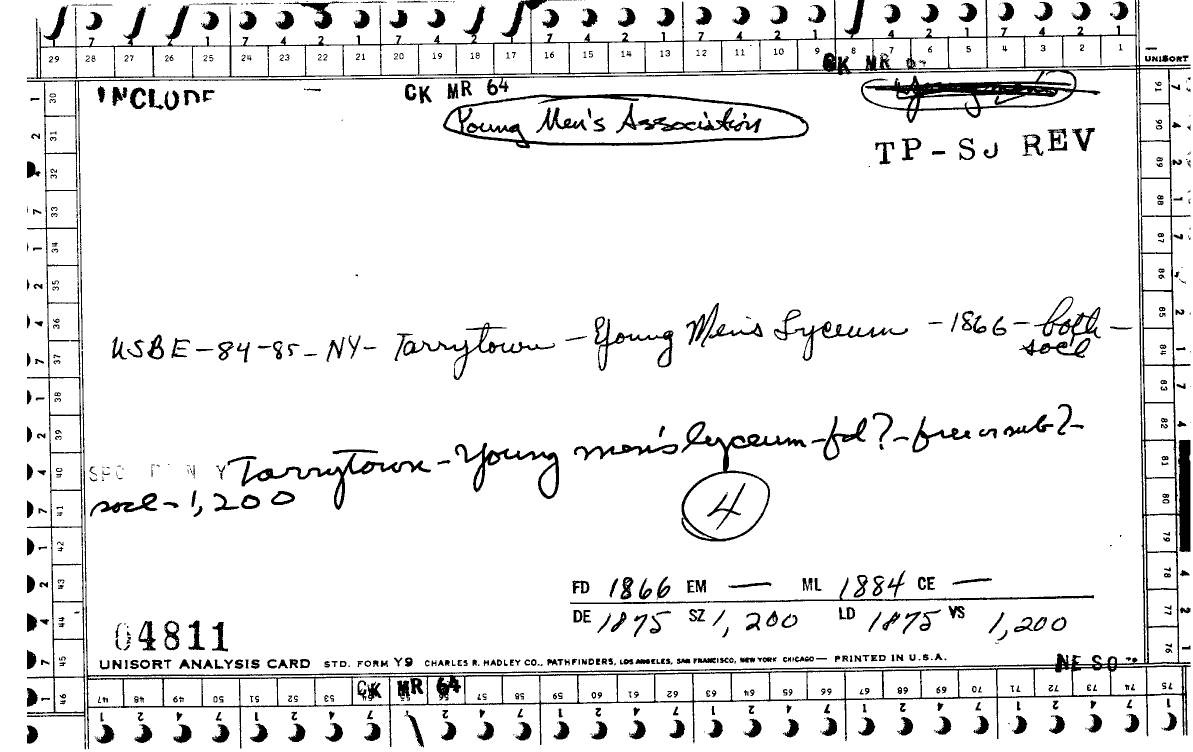 7 4 2 1 7 4 2 1 7 4 2 1 7 4 2 1 7 4 2 1
29 28 27 26 25 24 23 22 21 20 19 18 17 16 15 14 13 12 11 10 9 8 7 6 5 4 3 2 1 UNISORT
CK MR
INCLUDE — CK MR 64
Young Men's Association
TP-SJ REV
USBE-84-85-NY- Tarrytown - Young Men's Lyceum - 1866 - both - socl
Tarrytown - Young men's lyceum - fd? - free or sub? -
socl - 1,200
4
FD 1866 EM — ML 1884 CE —
DE 1875 SZ 1,200 LD 1875 VS 1,200
04811
UNISORT ANALYSIS CARD STD. FORM Y9 CHARLES R. HADLEY CO., PATHFINDERS, LOS ANGELES, SAN FRANCISCO, NEW YORK CHICAGO — PRINTED IN U.S.A.
NE SO
CK MR 64
30 31 32 33 34 35 36 37 38 39 40 41 42 43 44 45 46
47 48 49 50 51 52 53 57 58 59 60 61 62 63 64 65 66 67 68 69 70 71 72 73 74 75
91 90 89 88 87 86 85 84 83 82 81 80 79 78 77 76